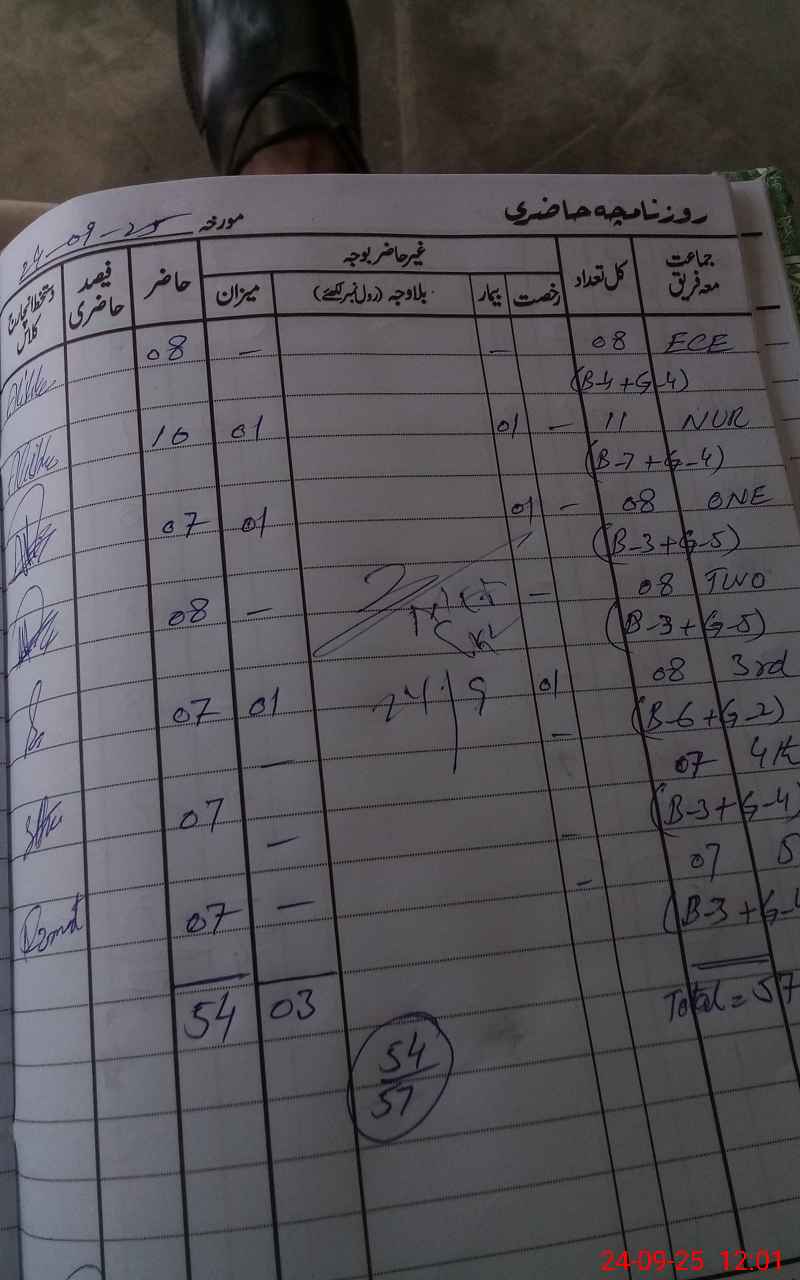 روزنامچہ حاضری مورخہ 24-09-25
جماعت معہ فریق کل تعداد غیر حاضر بوجہ حاضر فیصد حاضری دستخط انچارج کلاس
رخصت بیمار بلاوجہ (رول نمبر لکھئے) میزان
ECE 08 — — 08
(B-4+G-4)
NUR 11 — 01 01 10
(B-7+G-4)
ONE 08 — 01 01 07
(B-3+G-5)
TWO 08 — — 08
(B-3+G-5)
3rd 08 01 01 07
(B-6+G-2)
24/9
4th 07 — — 07
(B-3+G-4)
5 07 — — 07
(B-3+G-4
— —
Total = 57 03 54
54
57
24-09-25 12:01